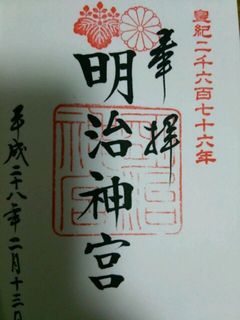 皇紀二千六百七十六年
奉拝
明治神宮
平成二十八年二月十三日